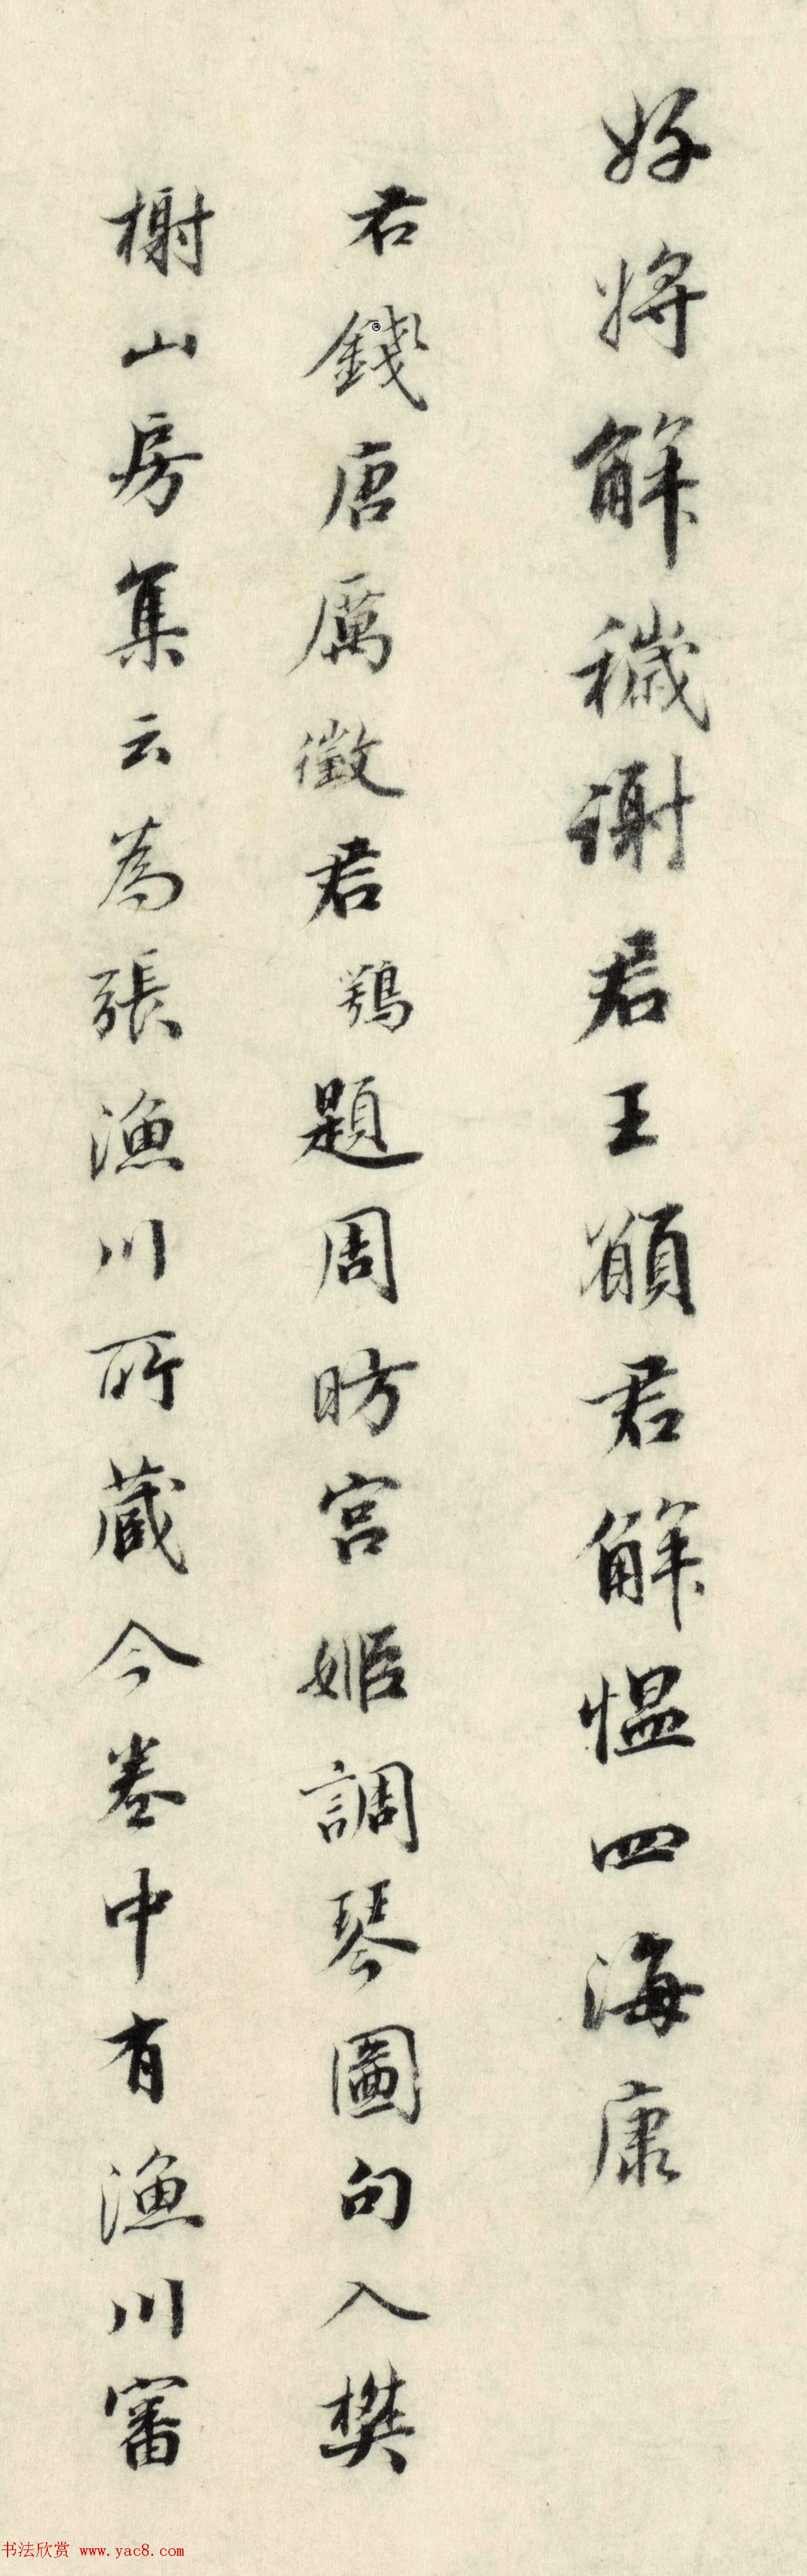 好將解穢謝君王願君解慍四海康
右錢唐厲徵君鶚題周昉宮姬調琴圖句入樊
榭山房集云為張漁川所藏今卷中有漁川審
书法欣赏 www.yac8.com